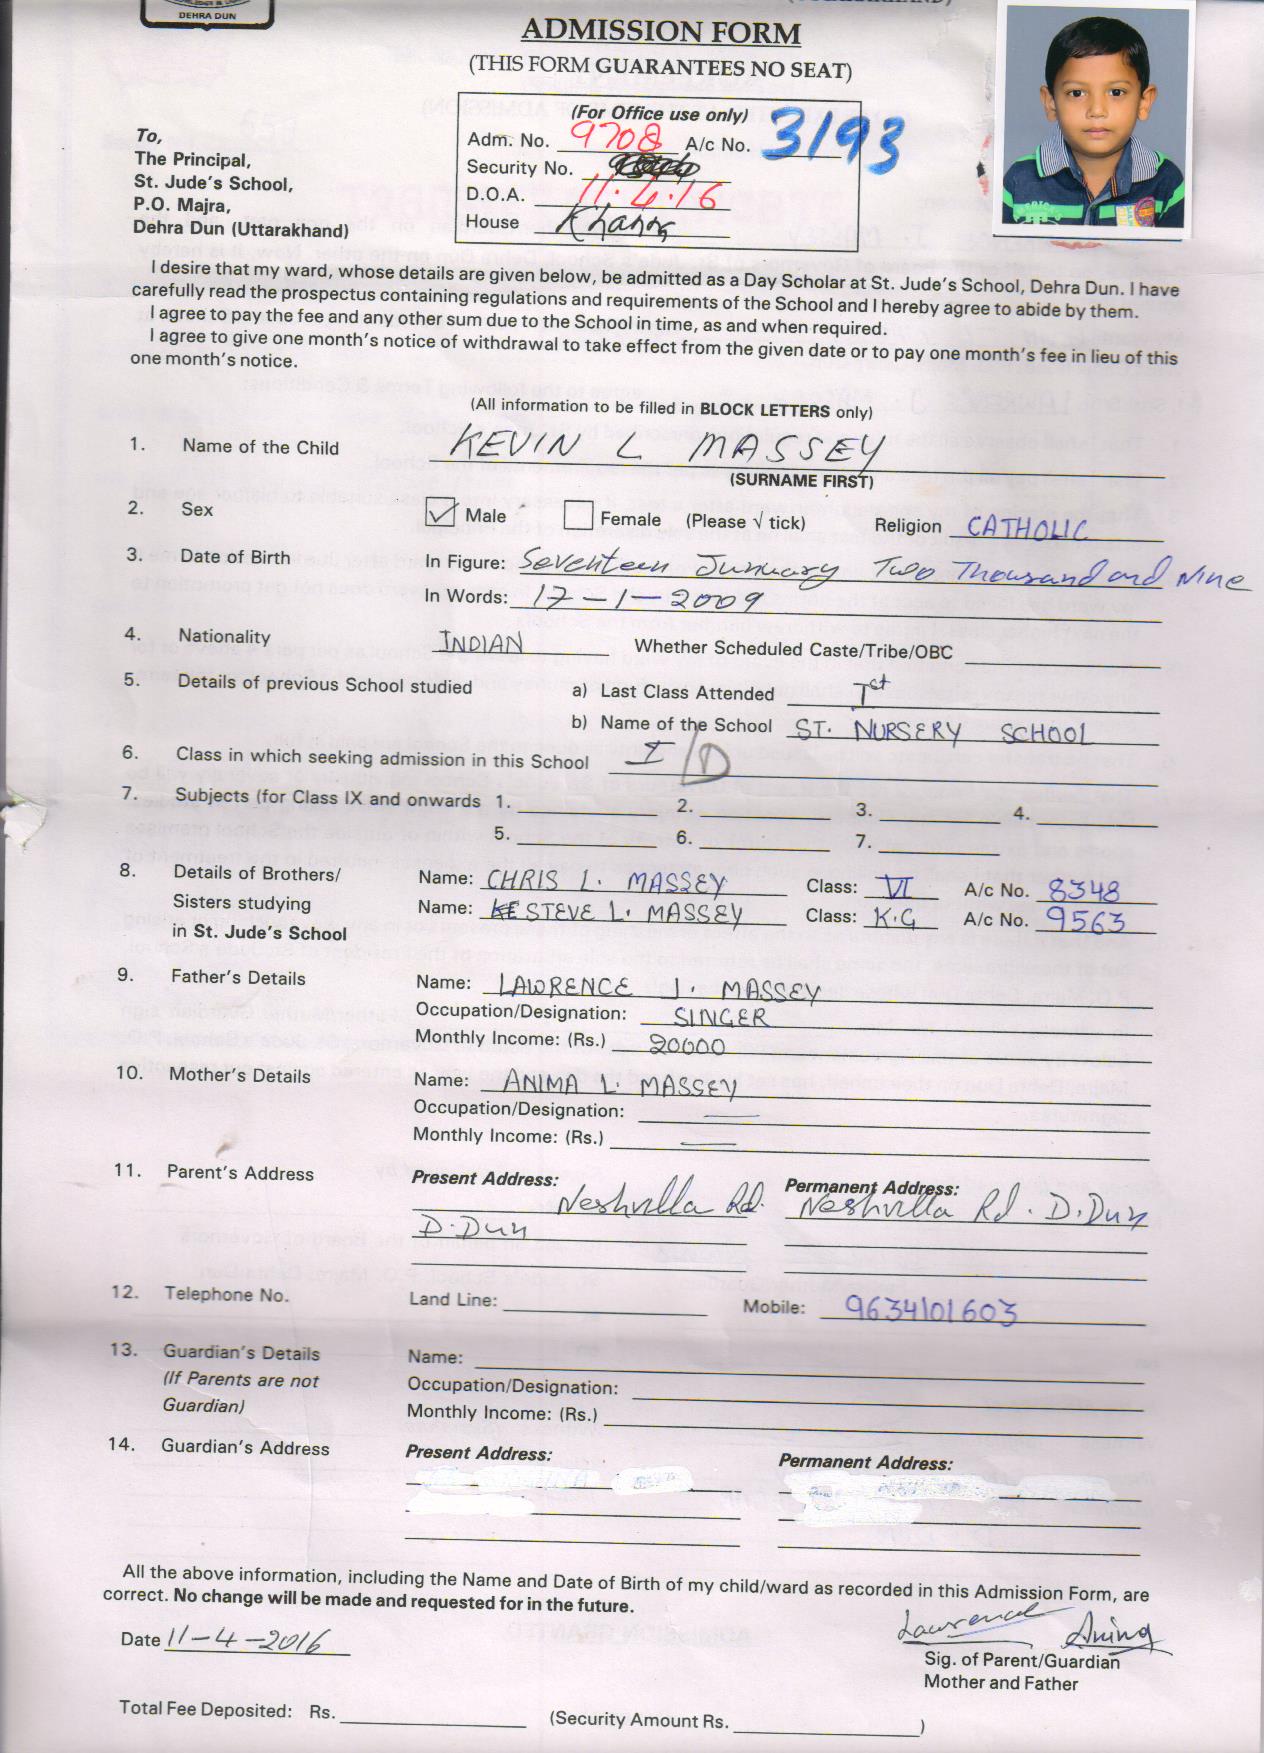 DEHRA DUN
ADMISSION FORM
(THIS FORM GUARANTEES NO SEAT)
(For Office use only)
Adm. No. 9708 A/c No. 3193
Security No.
D.O.A. 11.4.16
House
To,
The Principal,
St. Jude's School,
P.O. Majra,
Dehra Dun (Uttarakhand)
I desire that my ward, whose details are given below, be admitted as a Day Scholar at St. Jude's School, Dehra Dun. I have
carefully read the prospectus containing regulations and requirements of the School and I hereby agree to abide by them.
I agree to pay the fee and any other sum due to the School in time, as and when required.
I agree to give one month's notice of withdrawal to take effect from the given date or to pay one month's fee in lieu of this
one month's notice.
(All information to be filled in BLOCK LETTERS only)
1. Name of the Child KEVIN L MASSEY
(SURNAME FIRST)
2. Sex ✓ Male Female (Please √ tick) Religion CATHOLIC
3. Date of Birth In Figure: Seventeen Junuary Two Thousand and Nine
In Words: 17-1-2009
4. Nationality INDIAN Whether Scheduled Caste/Tribe/OBC
5. Details of previous School studied a) Last Class Attended Ist
b) Name of the School ST. NURSERY SCHOOL
6. Class in which seeking admission in this School I/D
7. Subjects (for Class IX and onwards 1. 2. 3. 4.
5. 6. 7.
8. Details of Brothers/ Name: CHRIS L. MASSEY Class: VI A/c No. 8348
Sisters studying Name: STEVE L. MASSEY Class: K.G A/c No. 9563
in St. Jude's School
9. Father's Details Name: LAWRENCE J. MASSEY
Occupation/Designation: SINGER
Monthly Income: (Rs.) 20000
10. Mother's Details Name: ANIMA L. MASSEY
Occupation/Designation: —
Monthly Income: (Rs.) —
11. Parent's Address Present Address: Permanent Address:
Neshvilla Rd. Neshvilla Rd. D.Dun
D.Dun
12. Telephone No. Land Line: Mobile: 9634101603
13. Guardian's Details Name:
(If Parents are not Occupation/Designation:
Guardian) Monthly Income: (Rs.)
14. Guardian's Address Present Address: Permanent Address:
All the above information, including the Name and Date of Birth of my child/ward as recorded in this Admission Form, are
correct. No change will be made and requested for in the future.
Date 11-4-2016 Lawrence Anima
Sig. of Parent/Guardian
Mother and Father
Total Fee Deposited: Rs. (Security Amount Rs. )